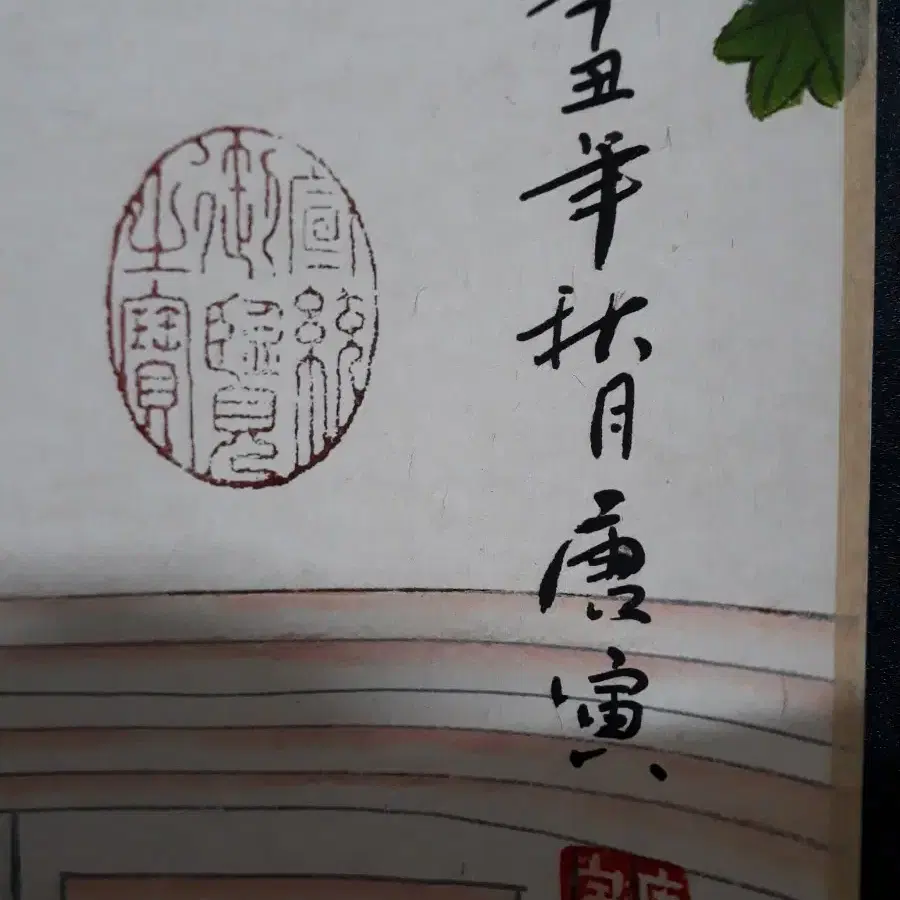 辛丑年秋月唐寅
宣統
御覽
之寶